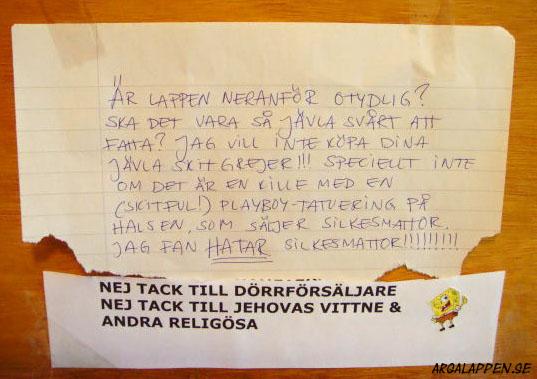 ÄR LAPPEN NERANFÖR OTYDLIG?
SKA DET VARA SÅ JÄVLA SVÅRT ATT
FATTA? JAG VILL INTE KÖPA DINA
JÄVLA SKITGREJER!!! SPECIELLT INTE
OM DET ÄR EN KILLE MED EN
(SKITFUL!) PLAYBOY-TATUERING PÅ
HALSEN, SOM SÄLJER SILKESMATTOR.
JAG FAN HATAR SILKESMATTOR!!!!!!!!!
NEJ TACK TILL DÖRRFÖRSÄLJARE
NEJ TACK TILL JEHOVAS VITTNE &
ANDRA RELIGÖSA
ARGALAPPEN.SE